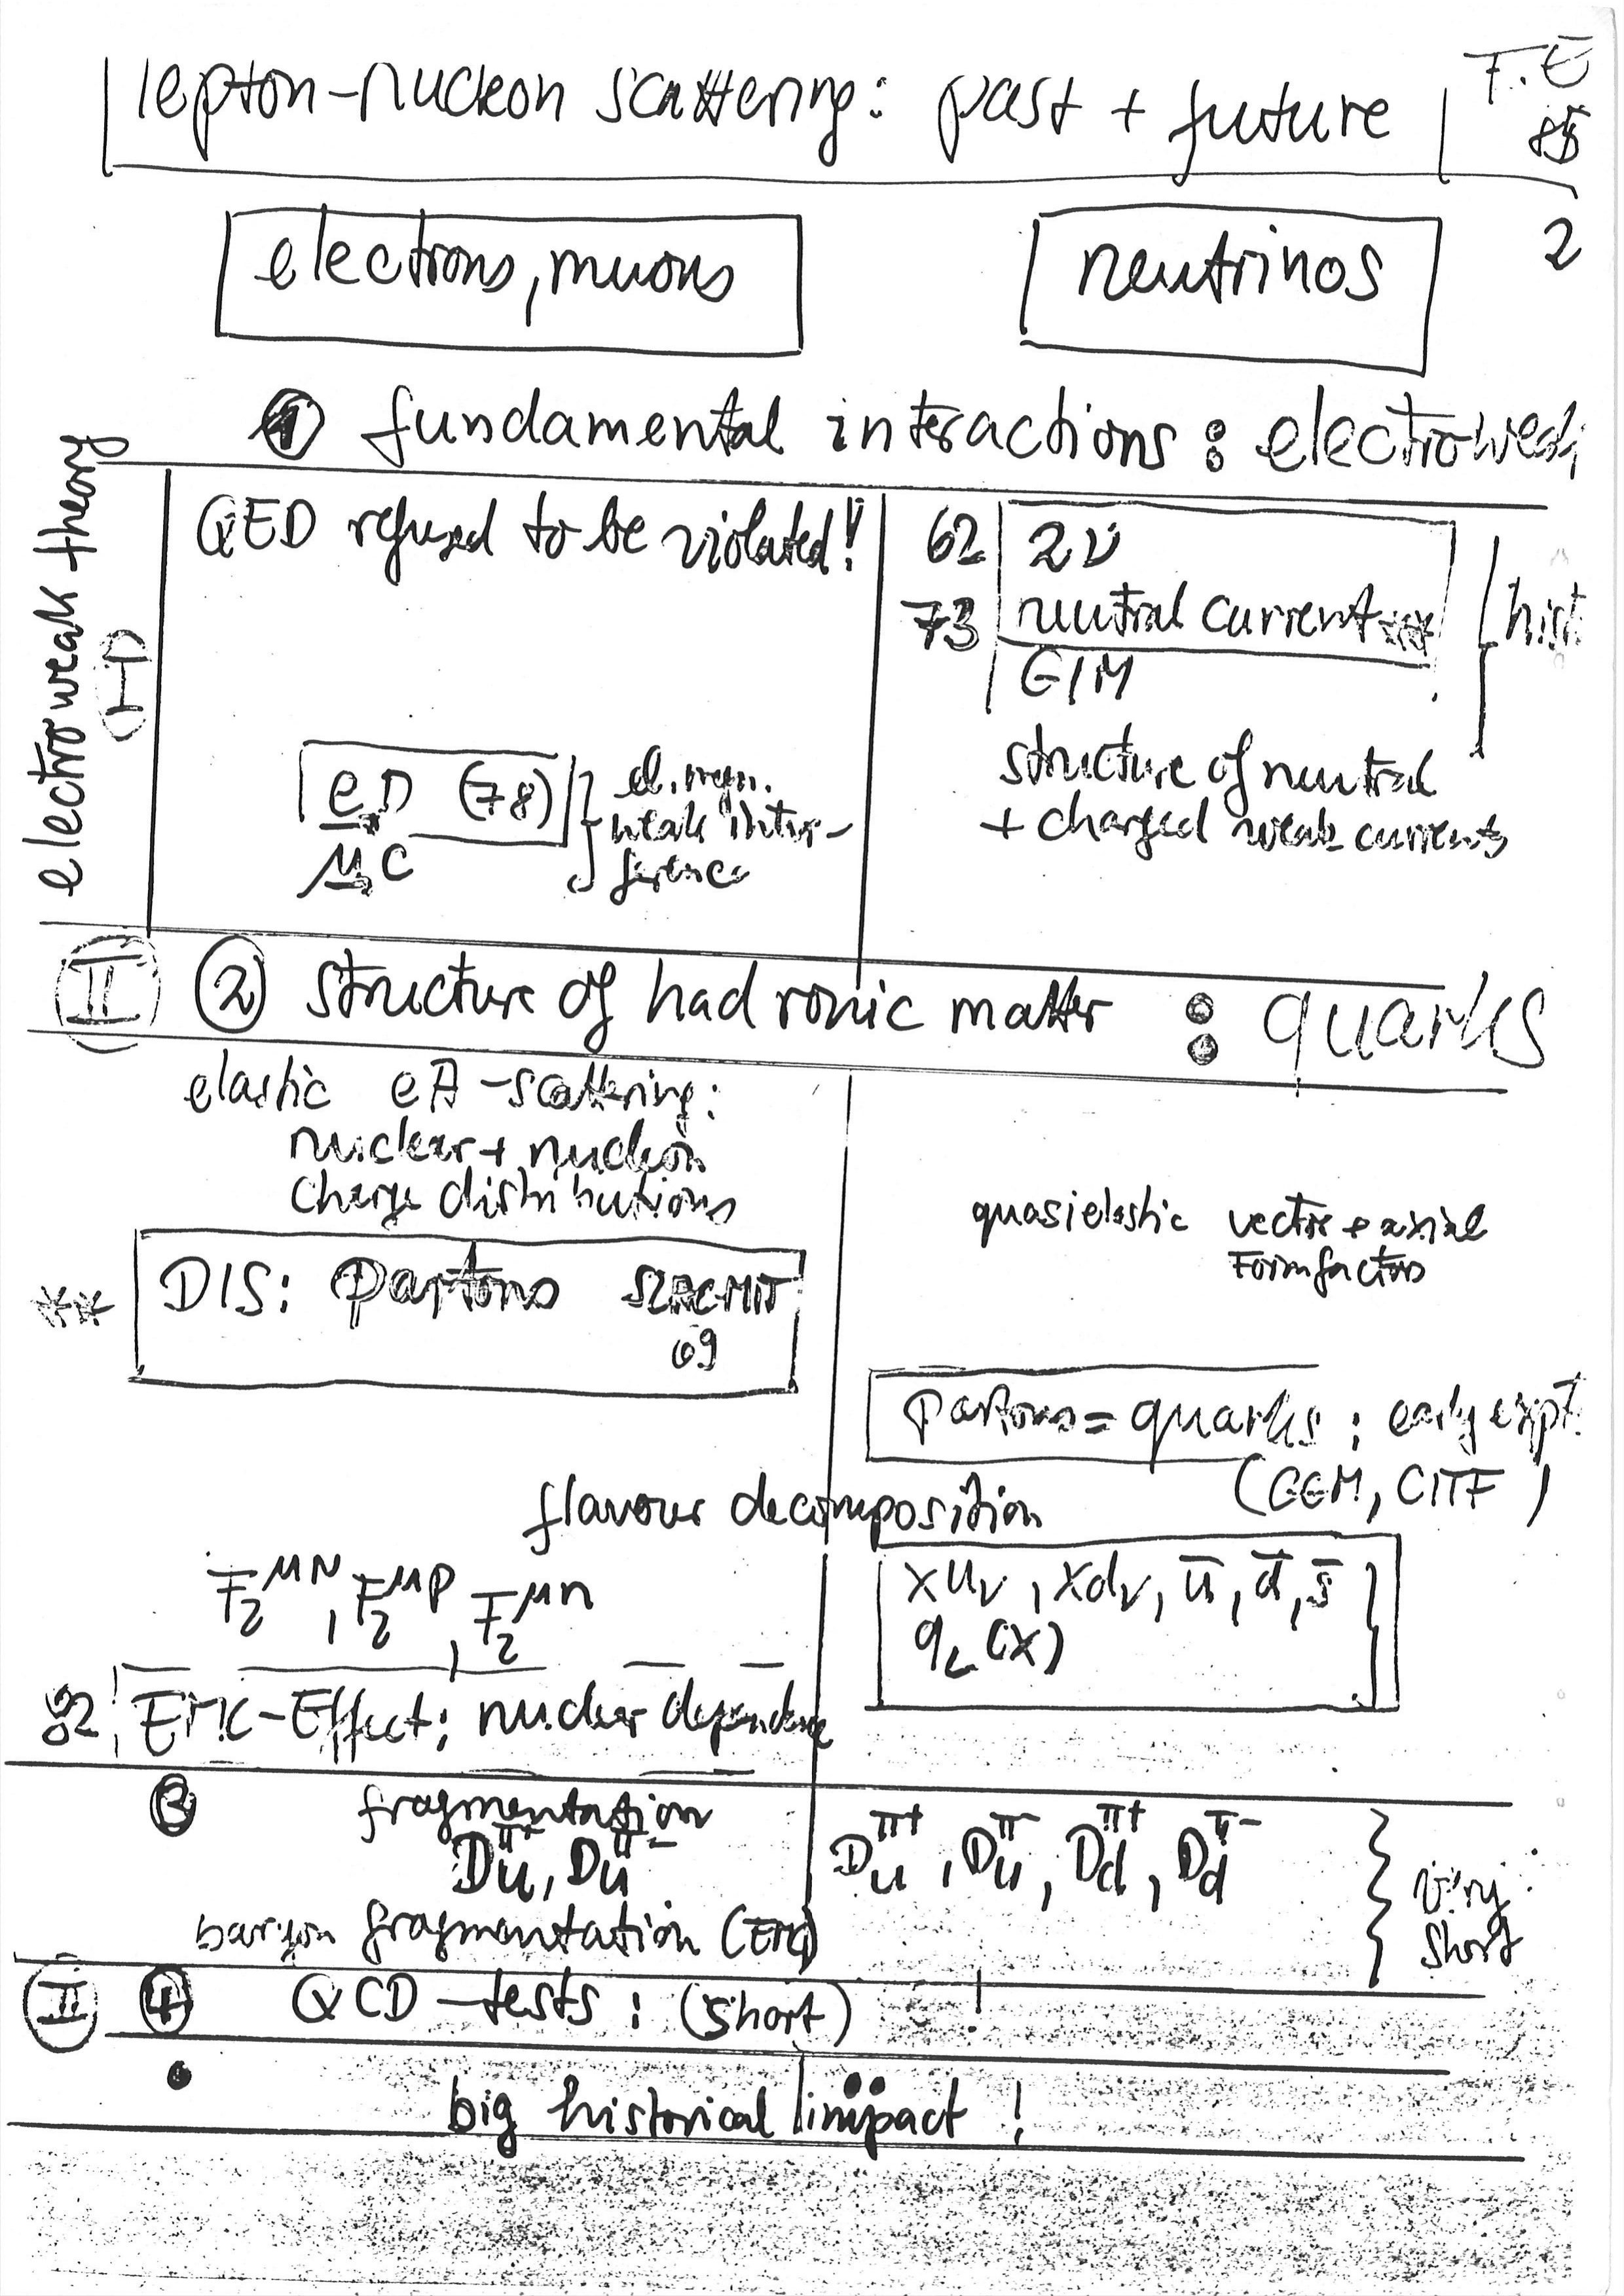 lepton-nucleon scattering: past + future
F.E
85
2
electrons, muons
neutrinos
① fundamental interactions : electroweak
electroweak theory
(I)
QED refused to be violated!!
62 2ν
73 neutral current ***
GIM
hist.
eD (78)
μC
el. magn.
weak inter-
ference
structure of neutral
+ charged weak currents
II ② structure of hadronic matter : quarks
elastic eA-scattering:
nuclear + nucleon
charge distributions
quasielastic vector + axial
Formfactors
** DIS: partons SLAC MIT
69
partons = quarks : early expt.
(GGM, CITF)
flavour decomposition
F₂^μN, F₂^μp, F₂^μn
xu_v, xd_v, ū, d̄, s̄
q_L(x)
82 EMC-Effect: nuclear dependence
③ fragmentation
D_u^π+, D_u^π-
D_u^π+, D_u^π-, D_d^π+, D_d^π-
very
short
baryon fragmentation (EMC)
II ④ QCD-tests : (short) !
• big historical impact !